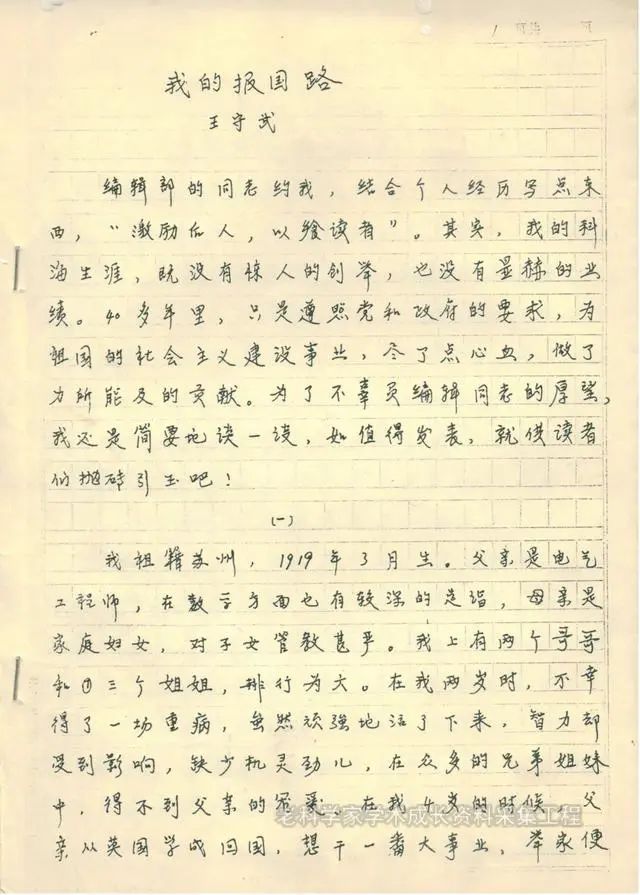 我的报国路
王守武
编辑部的同志约我，结合个人经历写点东
西，“激励后人，以飨读者”。其实，我的科
海生涯，既没有惊人的创举，也没有显赫的业
绩。40多年里，只是遵照党和政府的要求，为
祖国的社会主义建设事业，尽了点心血，做了
力所能及的贡献。为了不辜负编辑同志的厚望，
我还是简要地谈一谈，如值得发表，就供读者
们抛砖引玉吧！
(一)
我祖籍苏州，1919年3月生。父亲是电气
工程师，在数学方面也有较深的造诣，母亲是
家庭妇女，对子女管教甚严。我上有两个哥哥
和三个姐姐，排行为六。在我两岁时，不幸
得了一场重病，虽然顽强地活了下来，智力却
受到影响，缺少机灵劲儿，在众多的兄弟姐妹
中，得不到父亲的宠爱。在我4岁的时候，父
亲从英国学成回国，想干一番大事业，举家便
老科学家学术成长资料采集工程